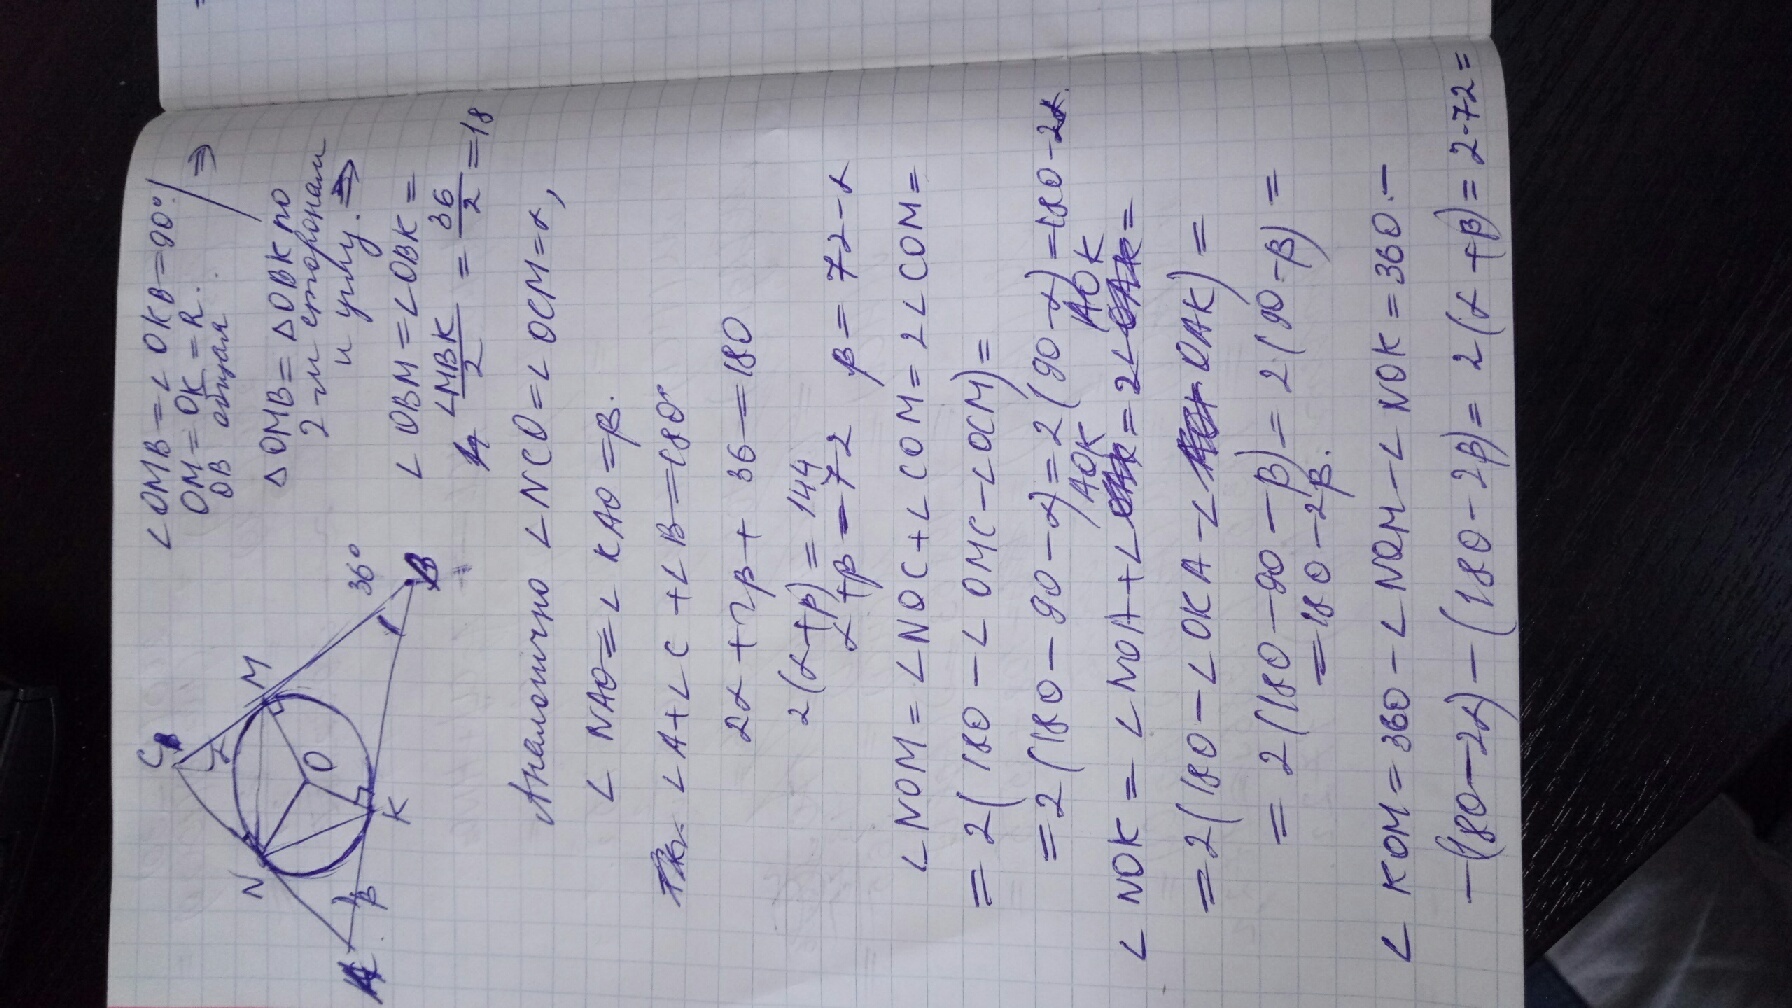 ∠OMB = ∠OKB = 90°.
OM = OK = R.
OB общая
⇒
△OMB = △OBK по
2-м сторонам
и углу. ⇒
∠OBM = ∠OBK =
∠MBK/2 = 36/2 = 18
C
M
N
O
K
A
B
36°
α
β
Аналогично ∠NCO = ∠OCM = α,
∠NAO = ∠KAO = β.
Т.к. ∠A + ∠C + ∠B = 180°
2α + 2β + 36 = 180
2(α+β) = 144
α + β = 72 β = 72 - α
∠NOM = ∠NOC + ∠COM = 2∠COM =
= 2(180 - ∠OMC - ∠OCM) =
= 2(180 - 90 - α) = 2(90 - α) = 180 - 2α.
∠NOK = ∠NOA + ∠AOK = 2∠AOK =
= 2(180 - ∠OKA - ∠OAK) =
= 2(180 - 90 - β) = 2(90 - β) =
= 180 - 2β.
∠KOM = 360 - ∠NOM - ∠NOK = 360 -
- (180 - 2α) - (180 - 2β) = 2(α + β) = 2·72 =